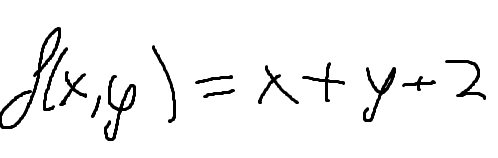 f(x,y) = x + y + 2